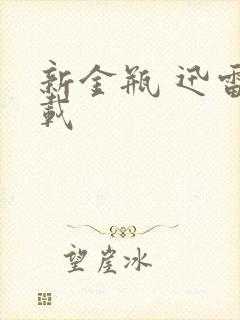 新金瓶 迅雷
载
望崖冰